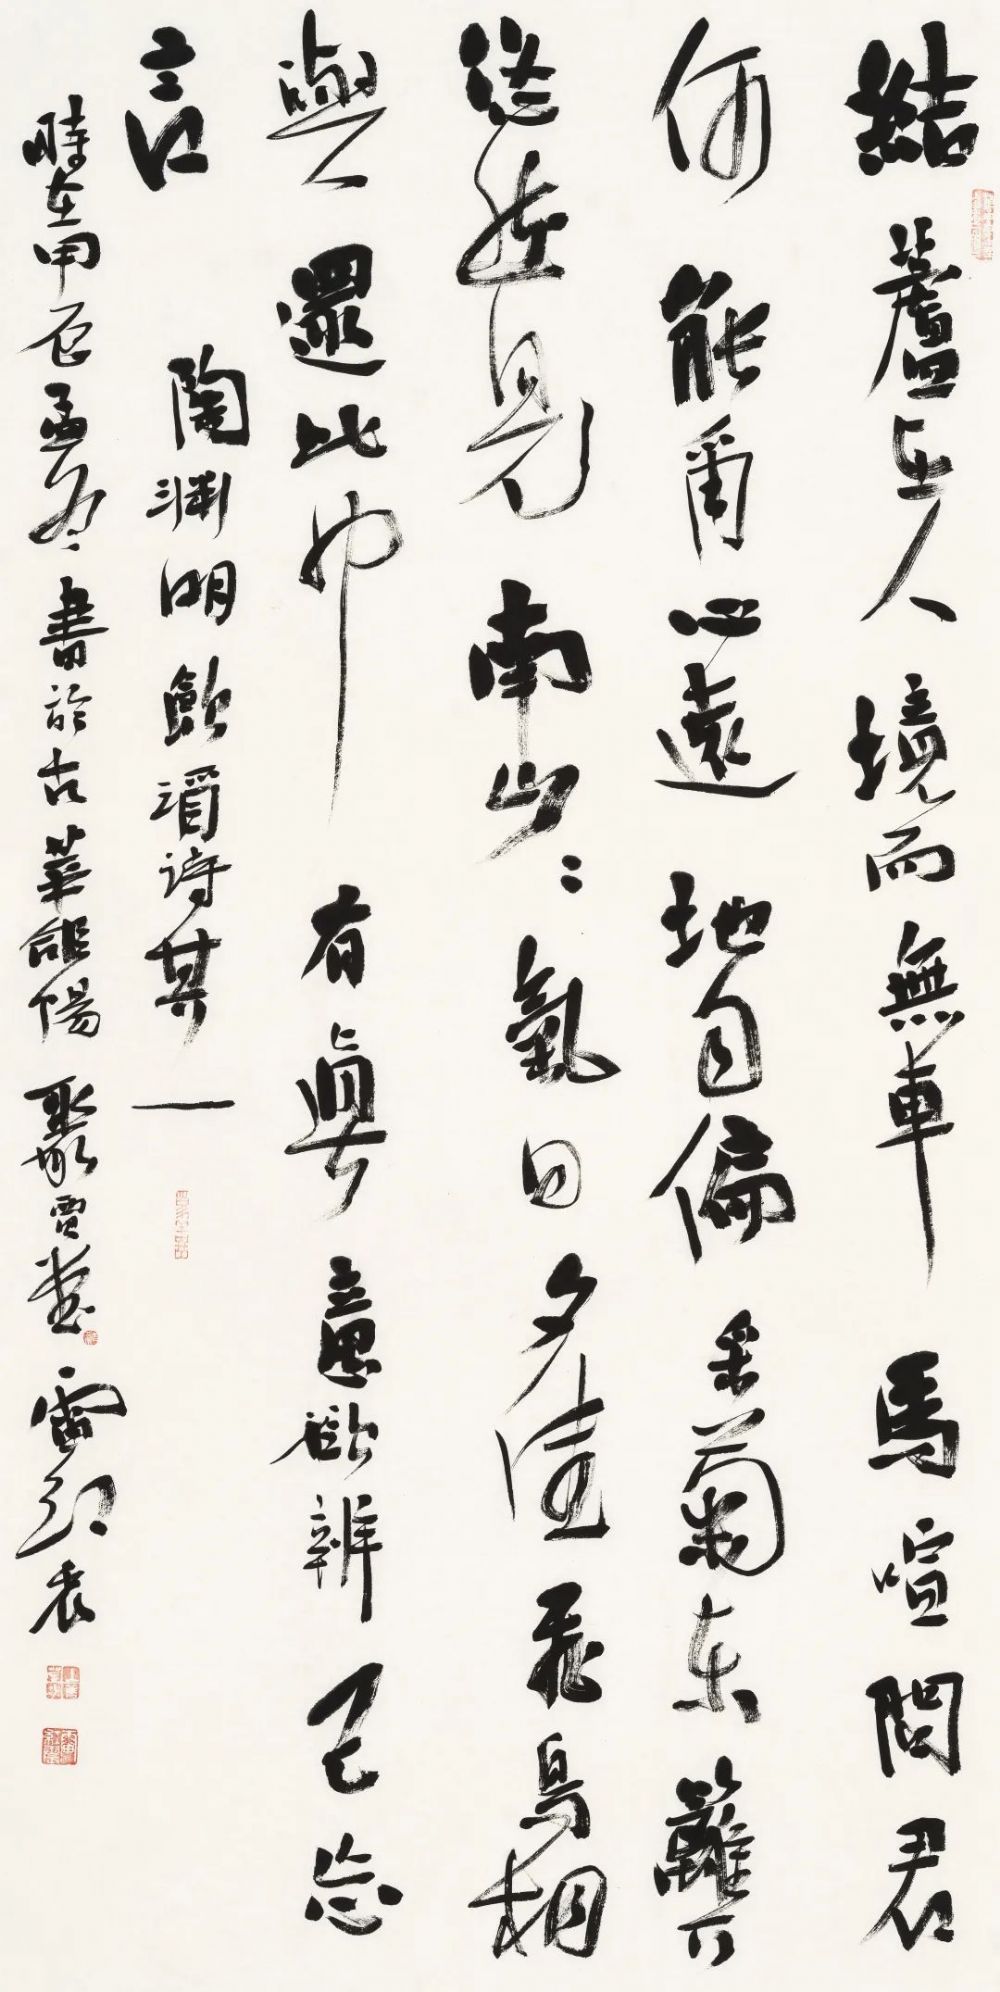 結廬在人境而無車馬喧問君
何能爾心遠地自偏采菊東籬下
悠然見南山山氣日夕佳飛鳥相
與還此中有真意欲辨已忘
言
陶淵明飲酒詩其一
時在甲辰孟冬書於古莘郃陽聚賢堂雷